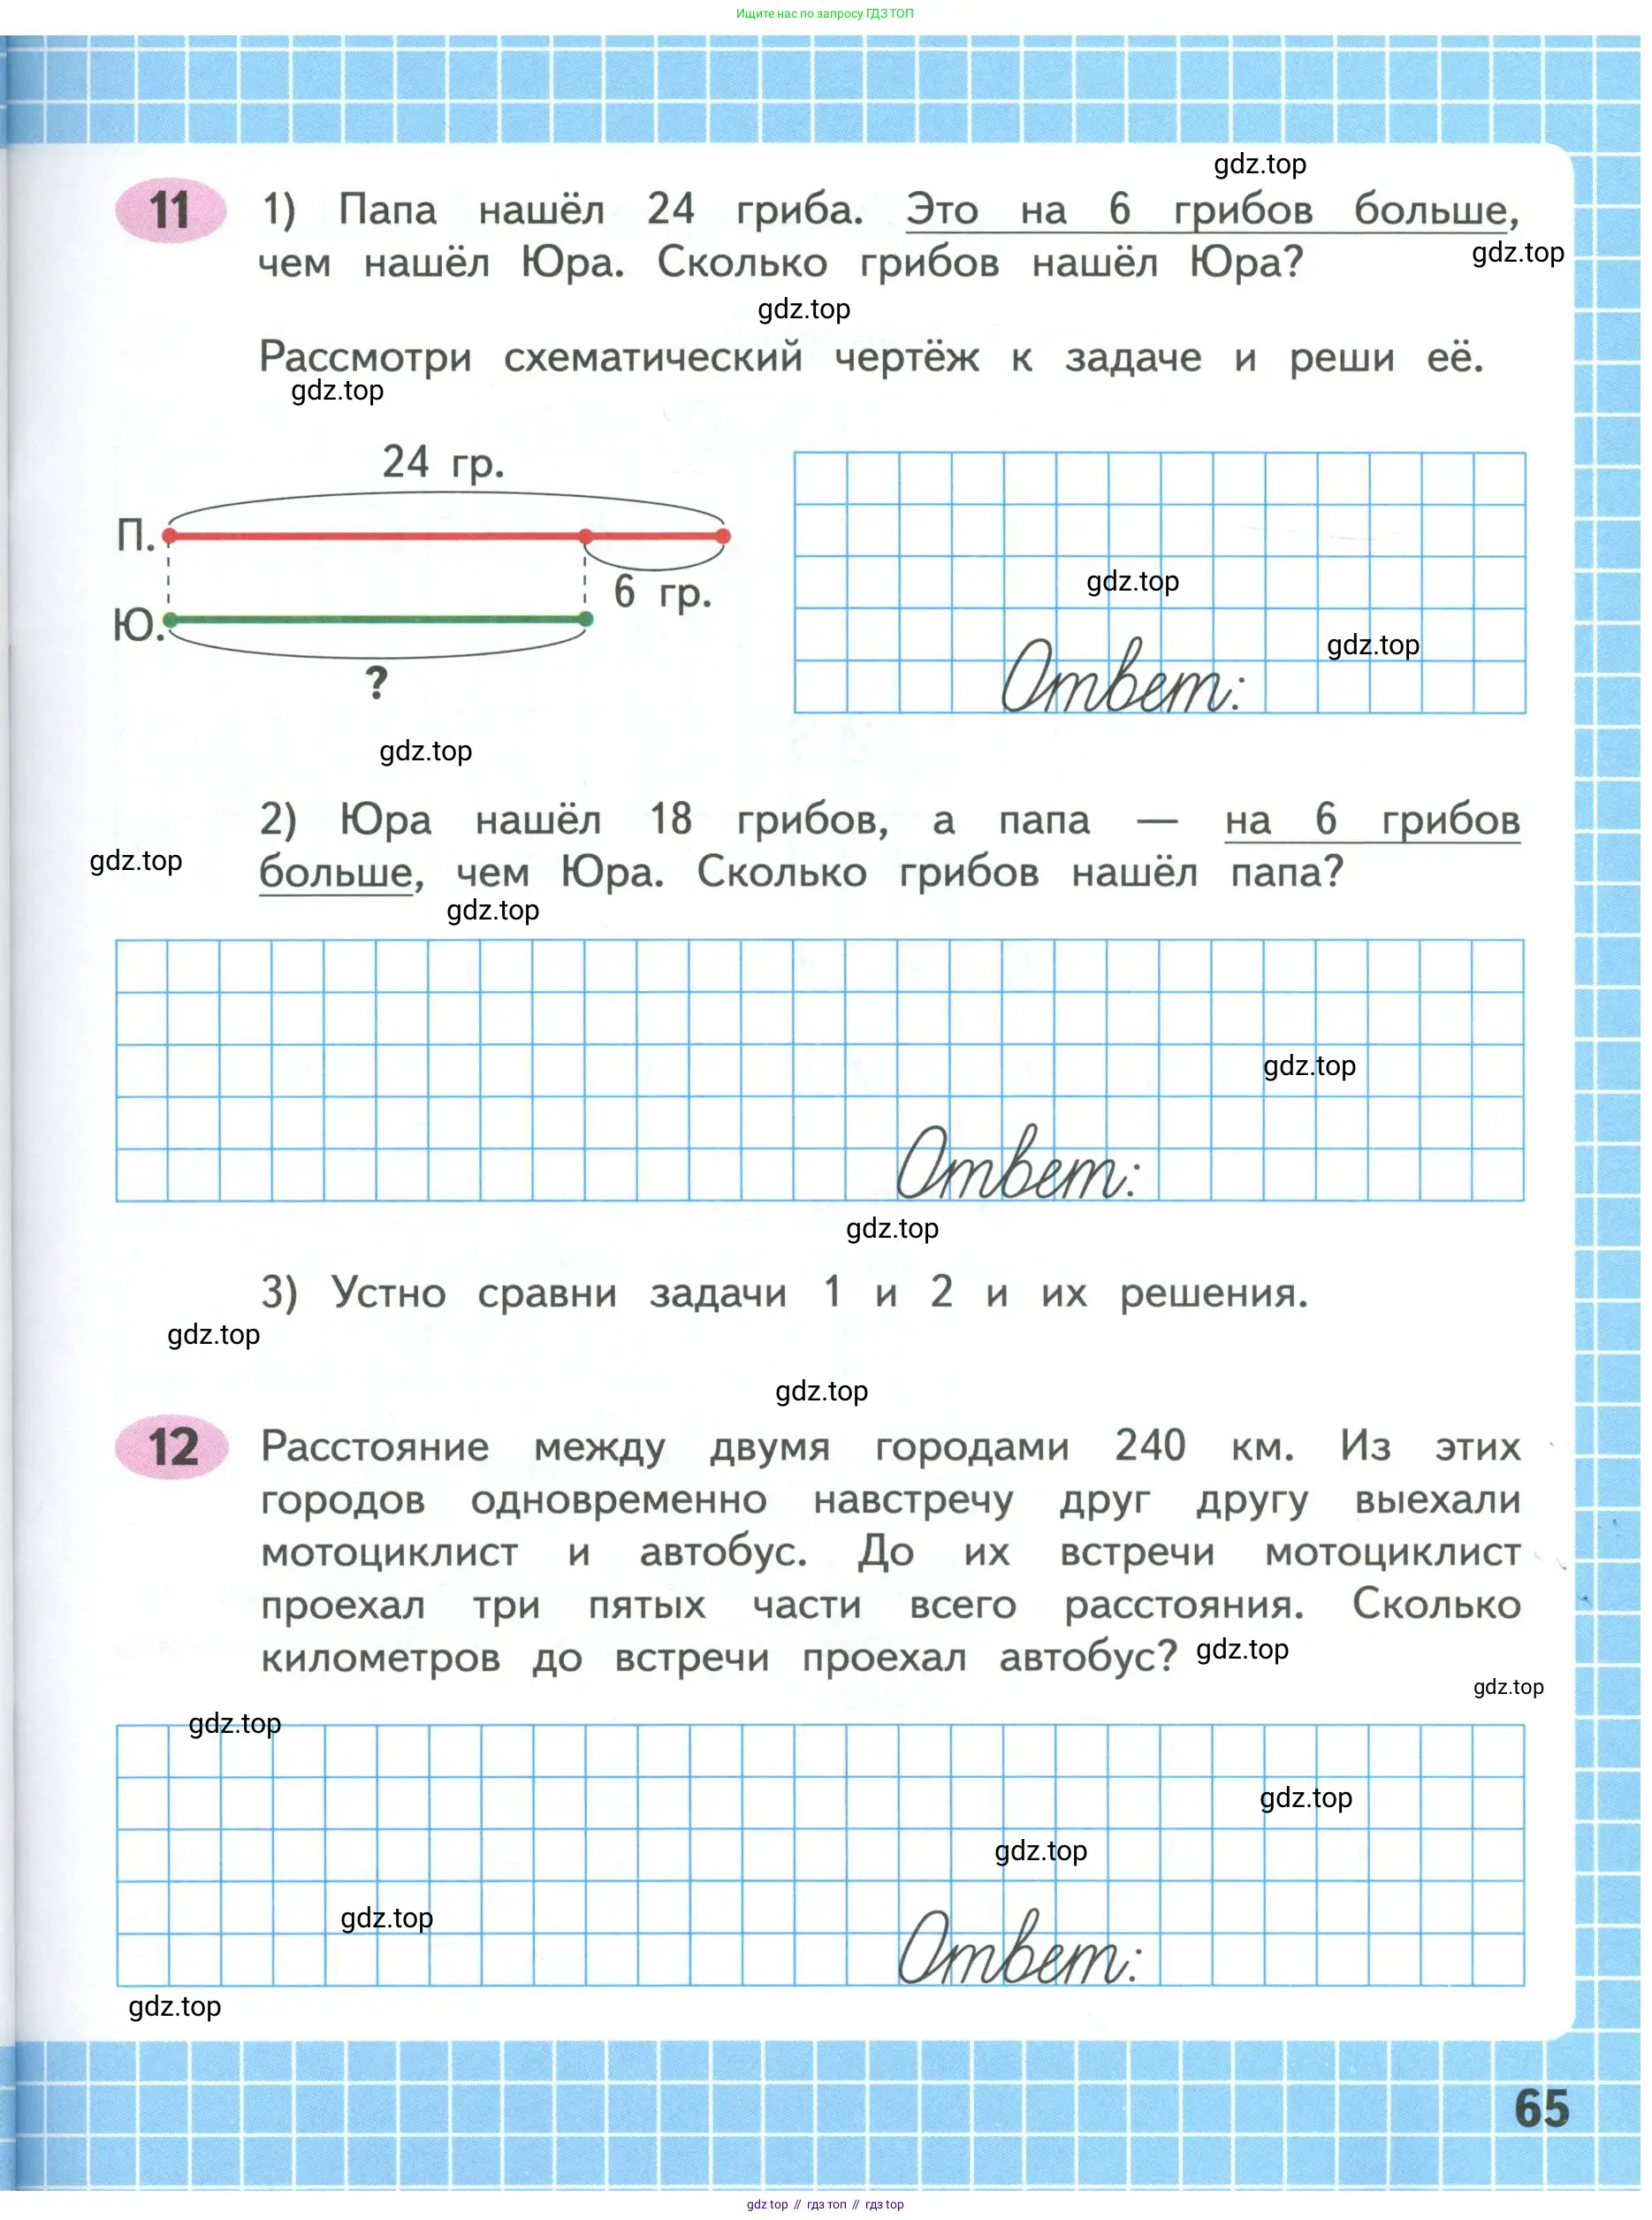 Ищите нас по запросу ГДЗ ТОП
gdz.top
11 1) Папа нашёл 24 гриба. Это на 6 грибов больше,
чем нашёл Юра. Сколько грибов нашёл Юра?
gdz.top
gdz.top
Рассмотри схематический чертёж к задаче и реши её.
gdz.top
24 гр.
П.
6 гр.
Ю.
?
gdz.top
gdz.top
Ответ:
gdz.top
2) Юра нашёл 18 грибов, а папа — на 6 грибов
gdz.top
больше, чем Юра. Сколько грибов нашёл папа?
gdz.top
gdz.top
Ответ:
gdz.top
3) Устно сравни задачи 1 и 2 и их решения.
gdz.top
gdz.top
12 Расстояние между двумя городами 240 км. Из этих
городов одновременно навстречу друг другу выехали
мотоциклист и автобус. До их встречи мотоциклист
проехал три пятых части всего расстояния. Сколько
километров до встречи проехал автобус? gdz.top
gdz.top
gdz.top
gdz.top
gdz.top
gdz.top
Ответ:
gdz.top
65
gdz top // гдз топ // гдз top